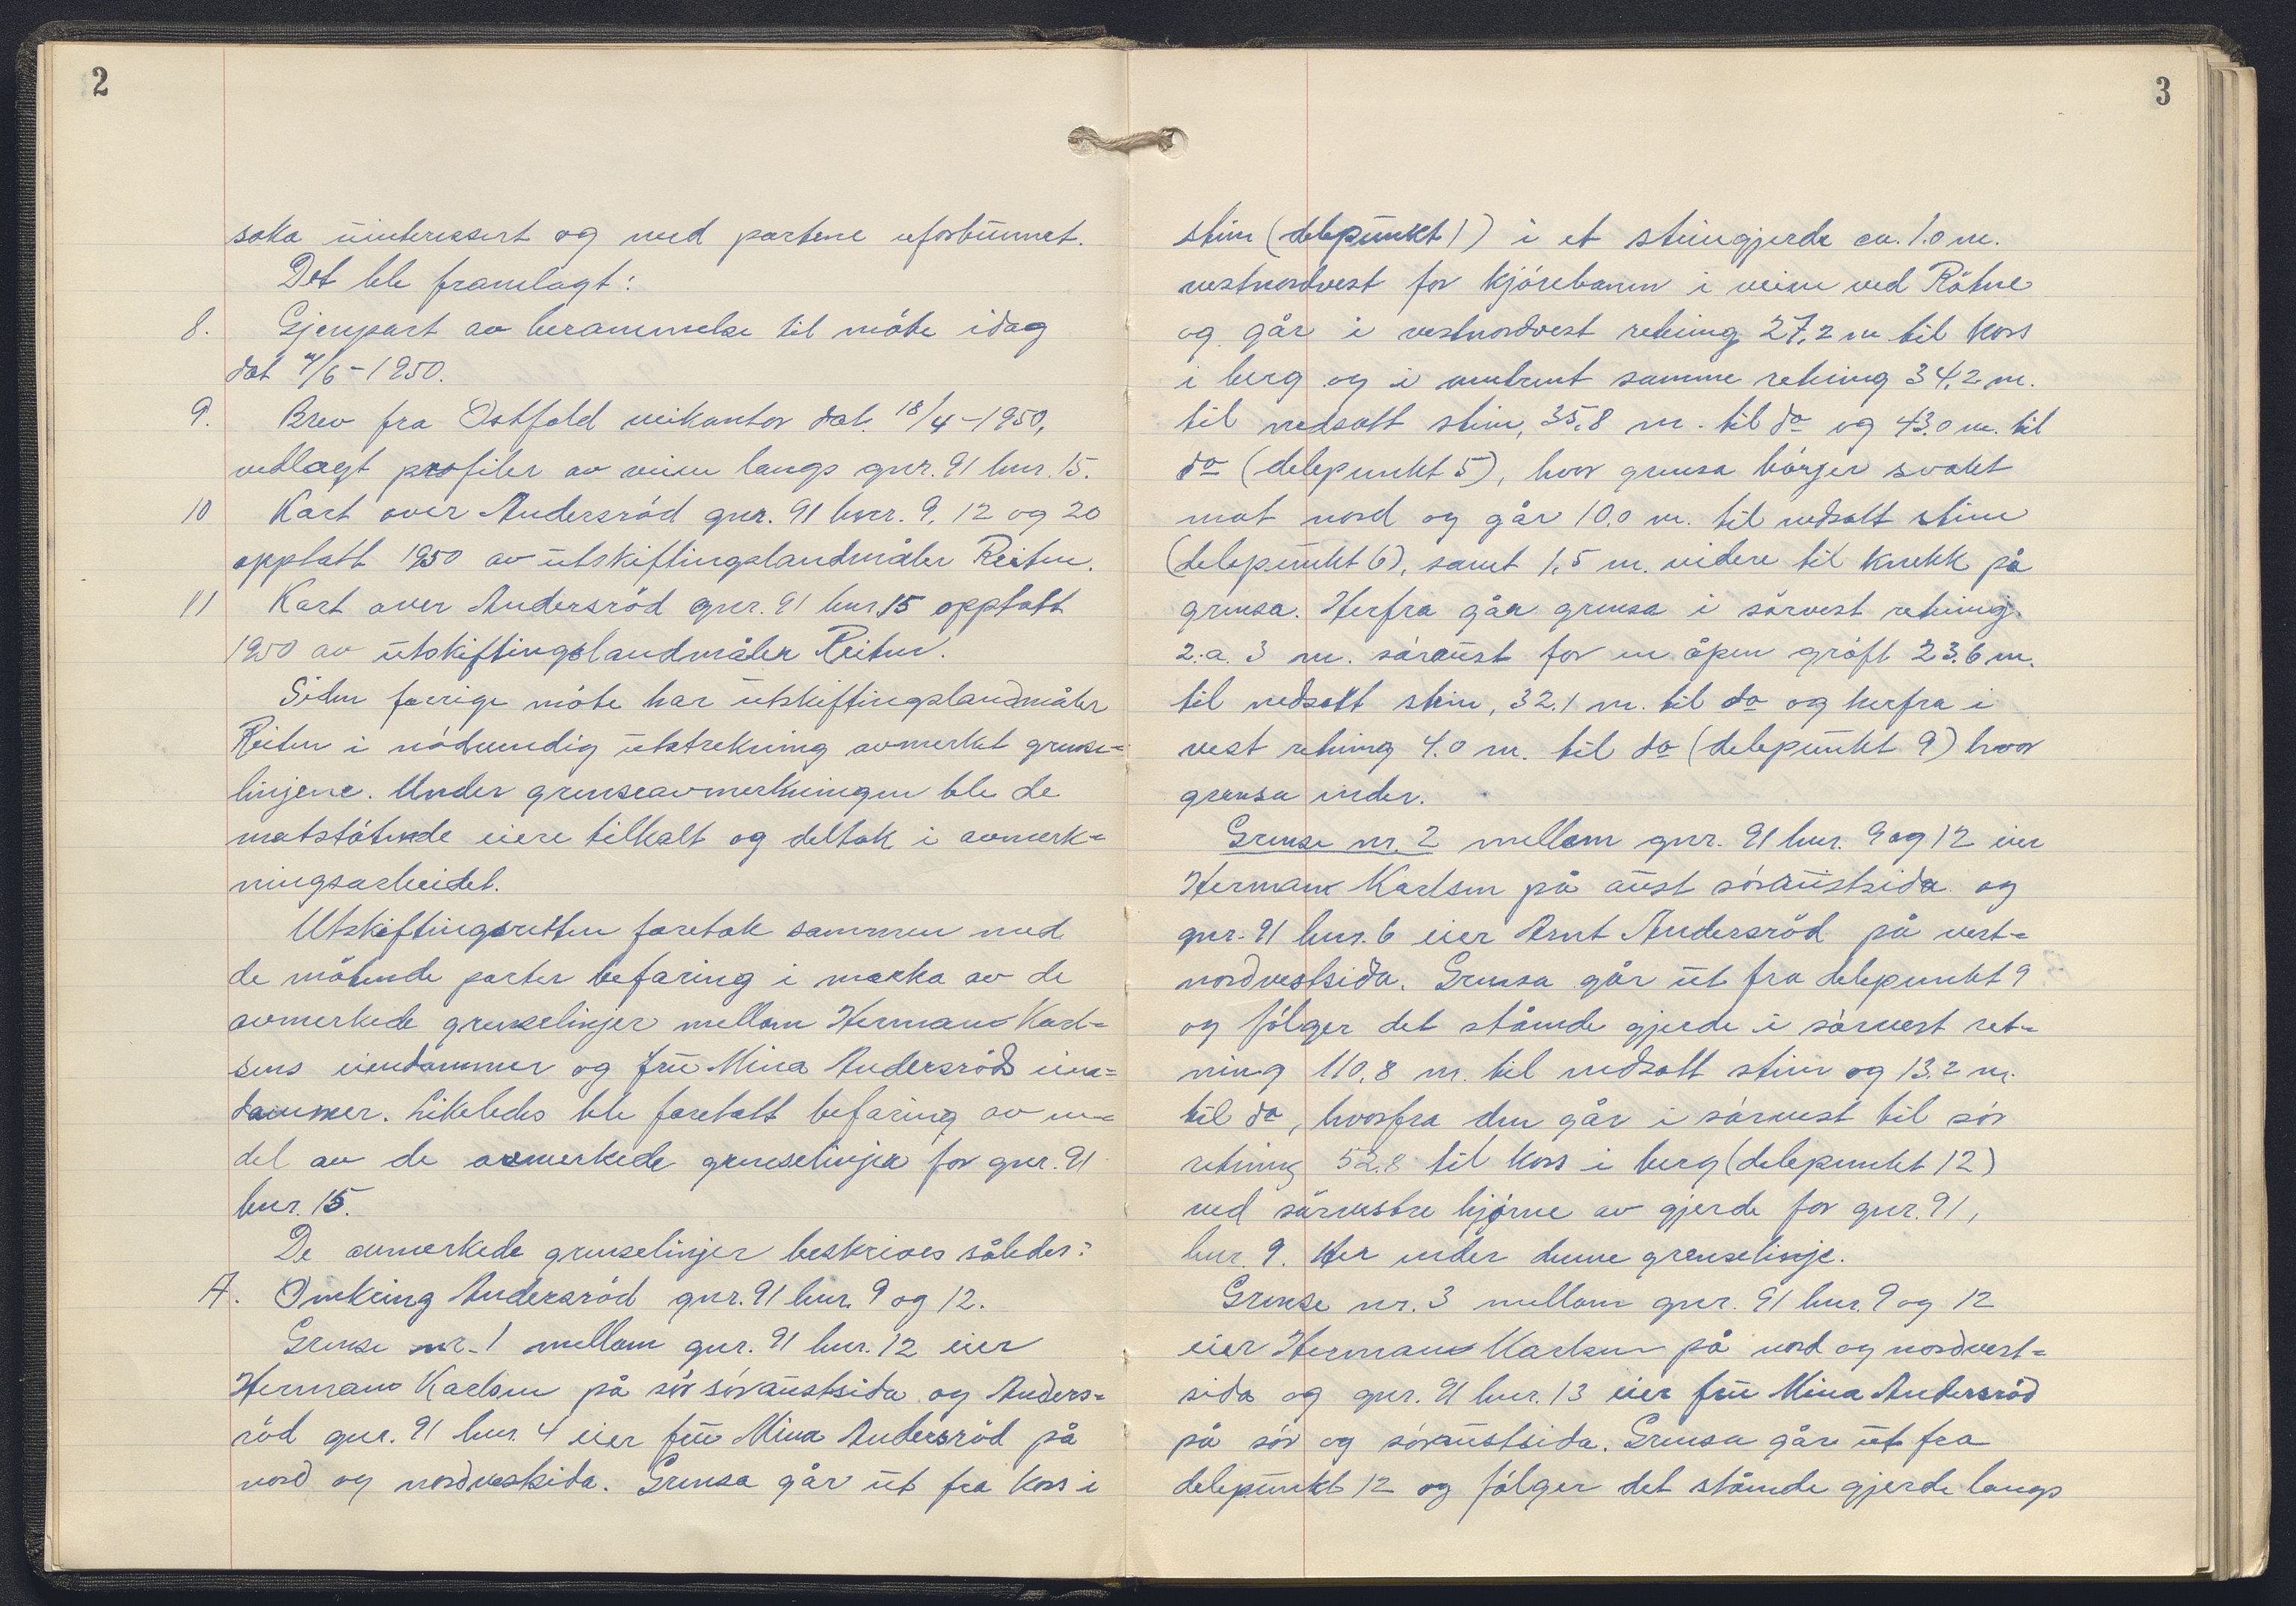 2
saka uinteressert og med partene uforbunnet.
Det ble framlagt:
8. Gjenpart av berammelse til möte idag
dat /6-1950.
9. Brev fra Østfold veikontor dat. 18/4-1950,
vedlagt profiler av veien langs gnr. 91 bnr. 15.
10 Kart over Andersröd gnr. 91 bnr. 9, 12 og 20
opptatt 1950 av utskiftingslandmåler Reiten.
11 Kart over Andersröd gnr. 91 bnr. 15 opptatt
1950 av utskiftingslandmåler Reiten.
Siden forrige möte har utskiftingslandmåler
Reiten i nödvendig utstrekning avmerket grense-
linjene. Under grenseavmerkningen ble de
motstötende eiere tilkalt og deltok i avmerk-
ningsarbeidet.
Utskiftingsretten foretok sammen med
de mötende parter befaring i marka av de
avmerkede grenselinjer mellom Herman Karl-
sens eiendommer og fru Mina Andersröds eien-
dommer. Likeledes ble foretatt befaring av en
del av de avmerkede grenselinjer for gnr. 91
bnr. 15.
De avmerkede grenselinjer beskrives således:
A. Omkring Andersröd gnr. 91 bnr. 9 og 12.
Grense nr. 1 mellom gnr. 91 bnr. 12 eier
Herman Karlsen på sör söraustsida og Anders-
röd gnr. 91 bnr. 4 eier fru Mina Andersröd på
nord og nordvestsida. Grensa går ut fra kors i
3
stein (delepunkt 1) i et steingjerde ca. 1.0 m.
vestnordvest for kjörebanen i veien ved Råtne
og går i vestnordvest retning 27,2 m til kors
i berg og i omtrent samme retning 34,2 m.
til nedsatt stein, 35,8 m. til do og 43.0 m. til
do (delepunkt 5), hvor grensa böyer svakt
mot nord og går 10.0 m. til nedsatt stein
(delepunkt 6), samt 1,5 m. videre til knekk på
grensa. Herfra går grensa i sörvest retning
2 a 3 m. söraust for en åpen gröft 23.6 m.
til nedsatt stein, 32.1 m. til do og herfra i
vest retning 4.0 m. til do (delepunkt 9) hvor
grensa ender.
Grense nr. 2 mellom gnr. 91 bnr. 9 og 12 eier
Herman Karlsen på aust söraustsida og
gnr. 91 bnr. 6 eier Arnt Andersröd på vest-
nordvestsida. Grensa går ut fra delepunkt 9
og fölger det stående gjerde i sörvest ret-
ning 110,8 m. til nedsatt stein og 13.2 m.
til do, hvorfra den går i sörvest til sör
retning 52.8 til kors i berg (delepunkt 12)
ved sörvestre hjörne av gjerde for gnr. 91,
bnr. 9. Her ender denne grenselinje.
Grense nr. 3 mellom gnr. 91 bnr. 9 og 12
eier Herman Karlsen på nord og nordvest-
sida og gnr. 91 bnr. 13 eier fru Mina Andersröd
på sör og söraustsida. Grensa går ut fra
delepunkt 12 og fölger det stående gjerde langs